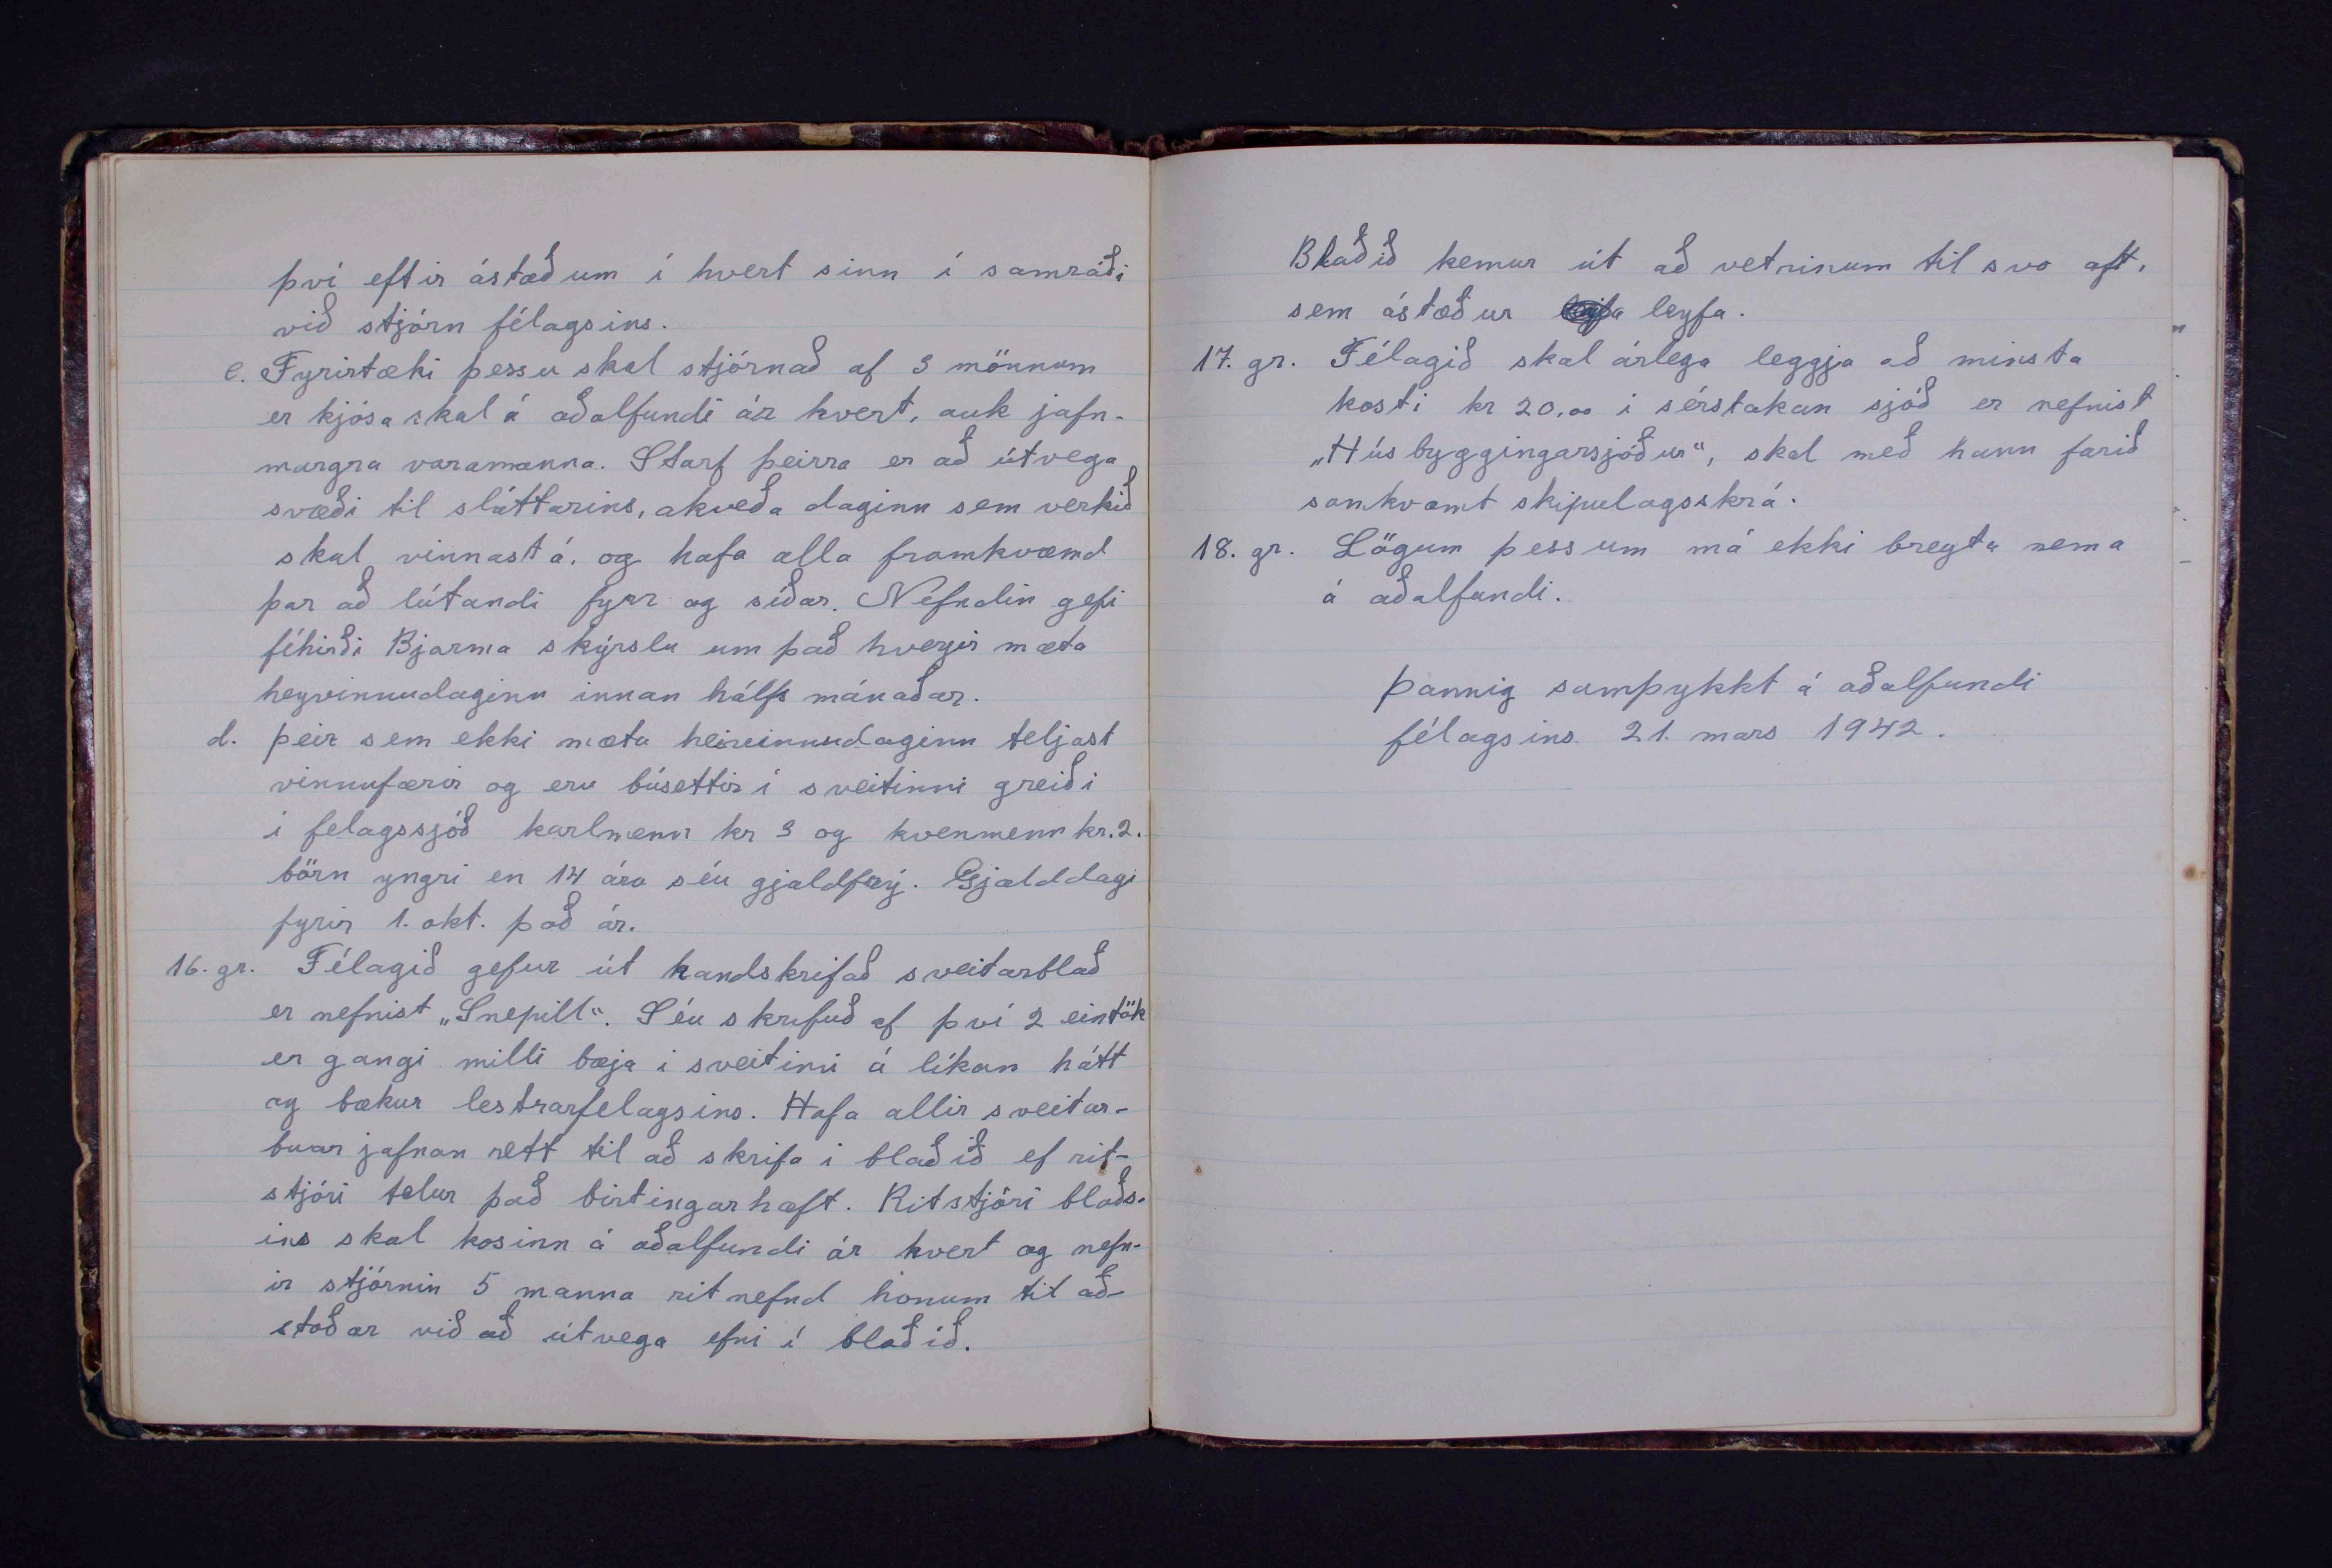 því eftir ástæðum í hvert sinn í samráði
við stjórn félagsins.
c. Fyrirtæki þessu skal stjórnað af 3 mönnum
er kjósa skal á aðalfundi ár hvert, auk jafn-
margra varamanna. Starf þeirra er að útvega
svæði til sláttarins, akveða daginn sem verkið
skal vinnast á, og hafa alla framkvæmd
þar að lútandi fyrr og síðar. Nefndin gefi
féhirði Bjarma skýrslu um það hverjir mæta
heyvinnudaginn innan hálfs mánaðar.
d. þeir sem ekki mæta heivinnudaginn teljast
vinnufærir og eru búsettir í sveitinni greiði
i felagssjóð karlmenn kr 3 og kvenmenn kr. 2.
börn yngri en 14 ára séu gjaldfrý. Gjalddagi
fyrir 1. okt. það ár.
16. gr. Félagið gefur út handskrifað sveitarblað
er nefnist „Snepill“. Séu skrifuð af því 2 eintök
er gangi milli bæja i sveitinni á líkan hátt
og bækur lestrarfelagsins. Hafa allir sveitar-
buar jafnan rett til að skrifa i blaðið ef rit-
stjóri telur það birtingarhæft. Ritstjóri blaðs-
ins skal kosinn á aðalfundi ár hvert og nefn-
ir stjórnin 5 manna ritnefnd honum til að-
stoðar við að útvega efni í blaðið.
Blaðið kemur út að vetrinum til svo oft,
sem ástæður leyfa.
17. gr. Félagið skal árlega leggja að minsta
kosti kr 20,00 i sérstakan sjóð er nefnist
„Húsbyggingarsjóður“, skal með hann farið
samkvæmt skipulagsskrá.
18. gr. Lögum þessum má ekki breyta nema
á aðalfundi.
þannig samþykkt á aðalfundi
félagsins 21. mars 1942.